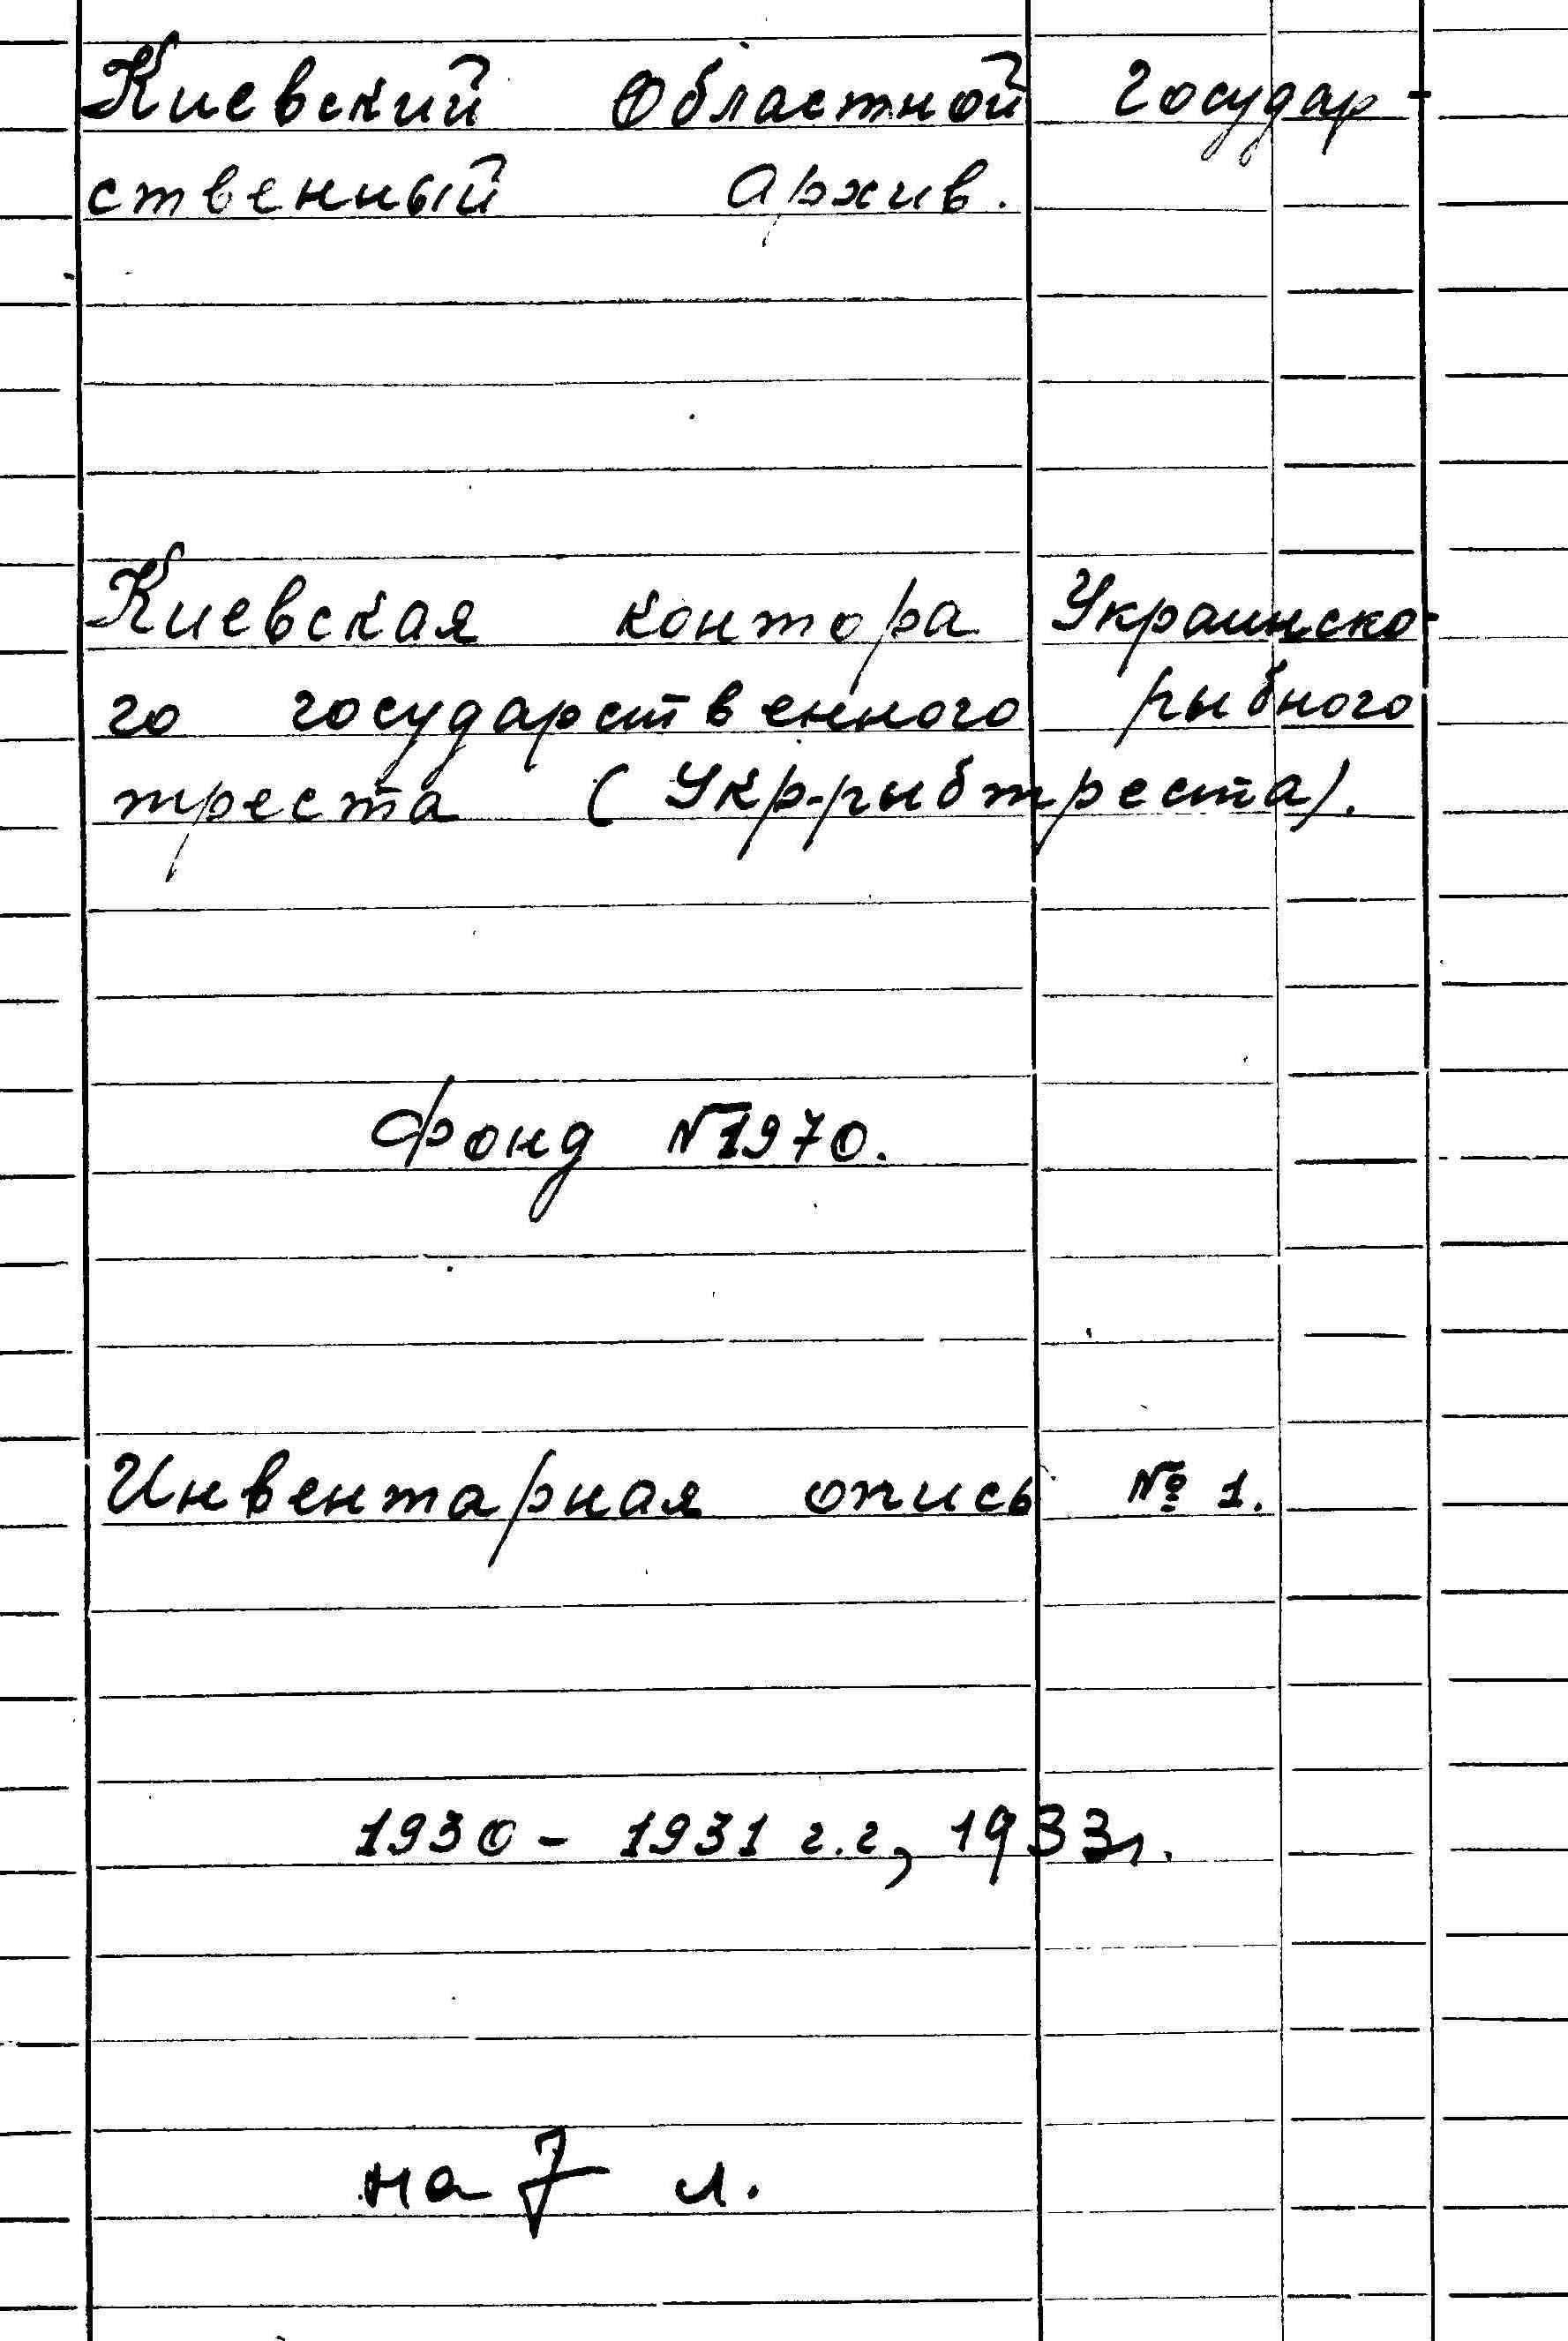 Киевский Областной Государ-
ственный Архив.
Киевская контора Украинско-
го государственного рыбного
треста (Укр-рыбтреста).
Фонд №1970.
Инвентарная опись № 1.
1930 - 1931 г.г, 1933г.
на 7 л.